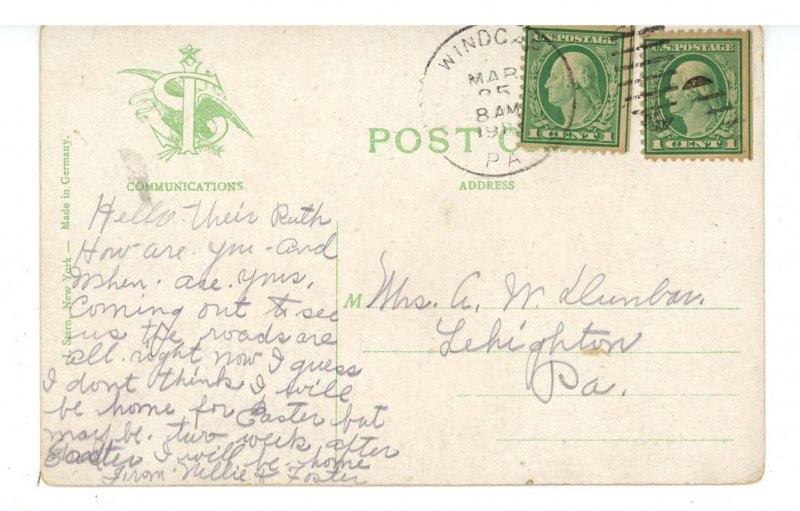 WINDGA
MAR
25
8 AM
19
PA
U.S. POSTAGE
1 CENT 1
U.S. POSTAGE
1 CENT 1
POST C
COMMUNICATIONS
ADDRESS
Stern, New York — Made in Germany.
Hello Their Ruth
How are you and
When are yous
Coming out to see
us the roads are
all right now I guess
I dont think I will
be home for Easter but
may be two week after
Easter I will be home
From Nellie Foster
M
Mrs. A. W. Dunbar.
Lehighton
Pa.